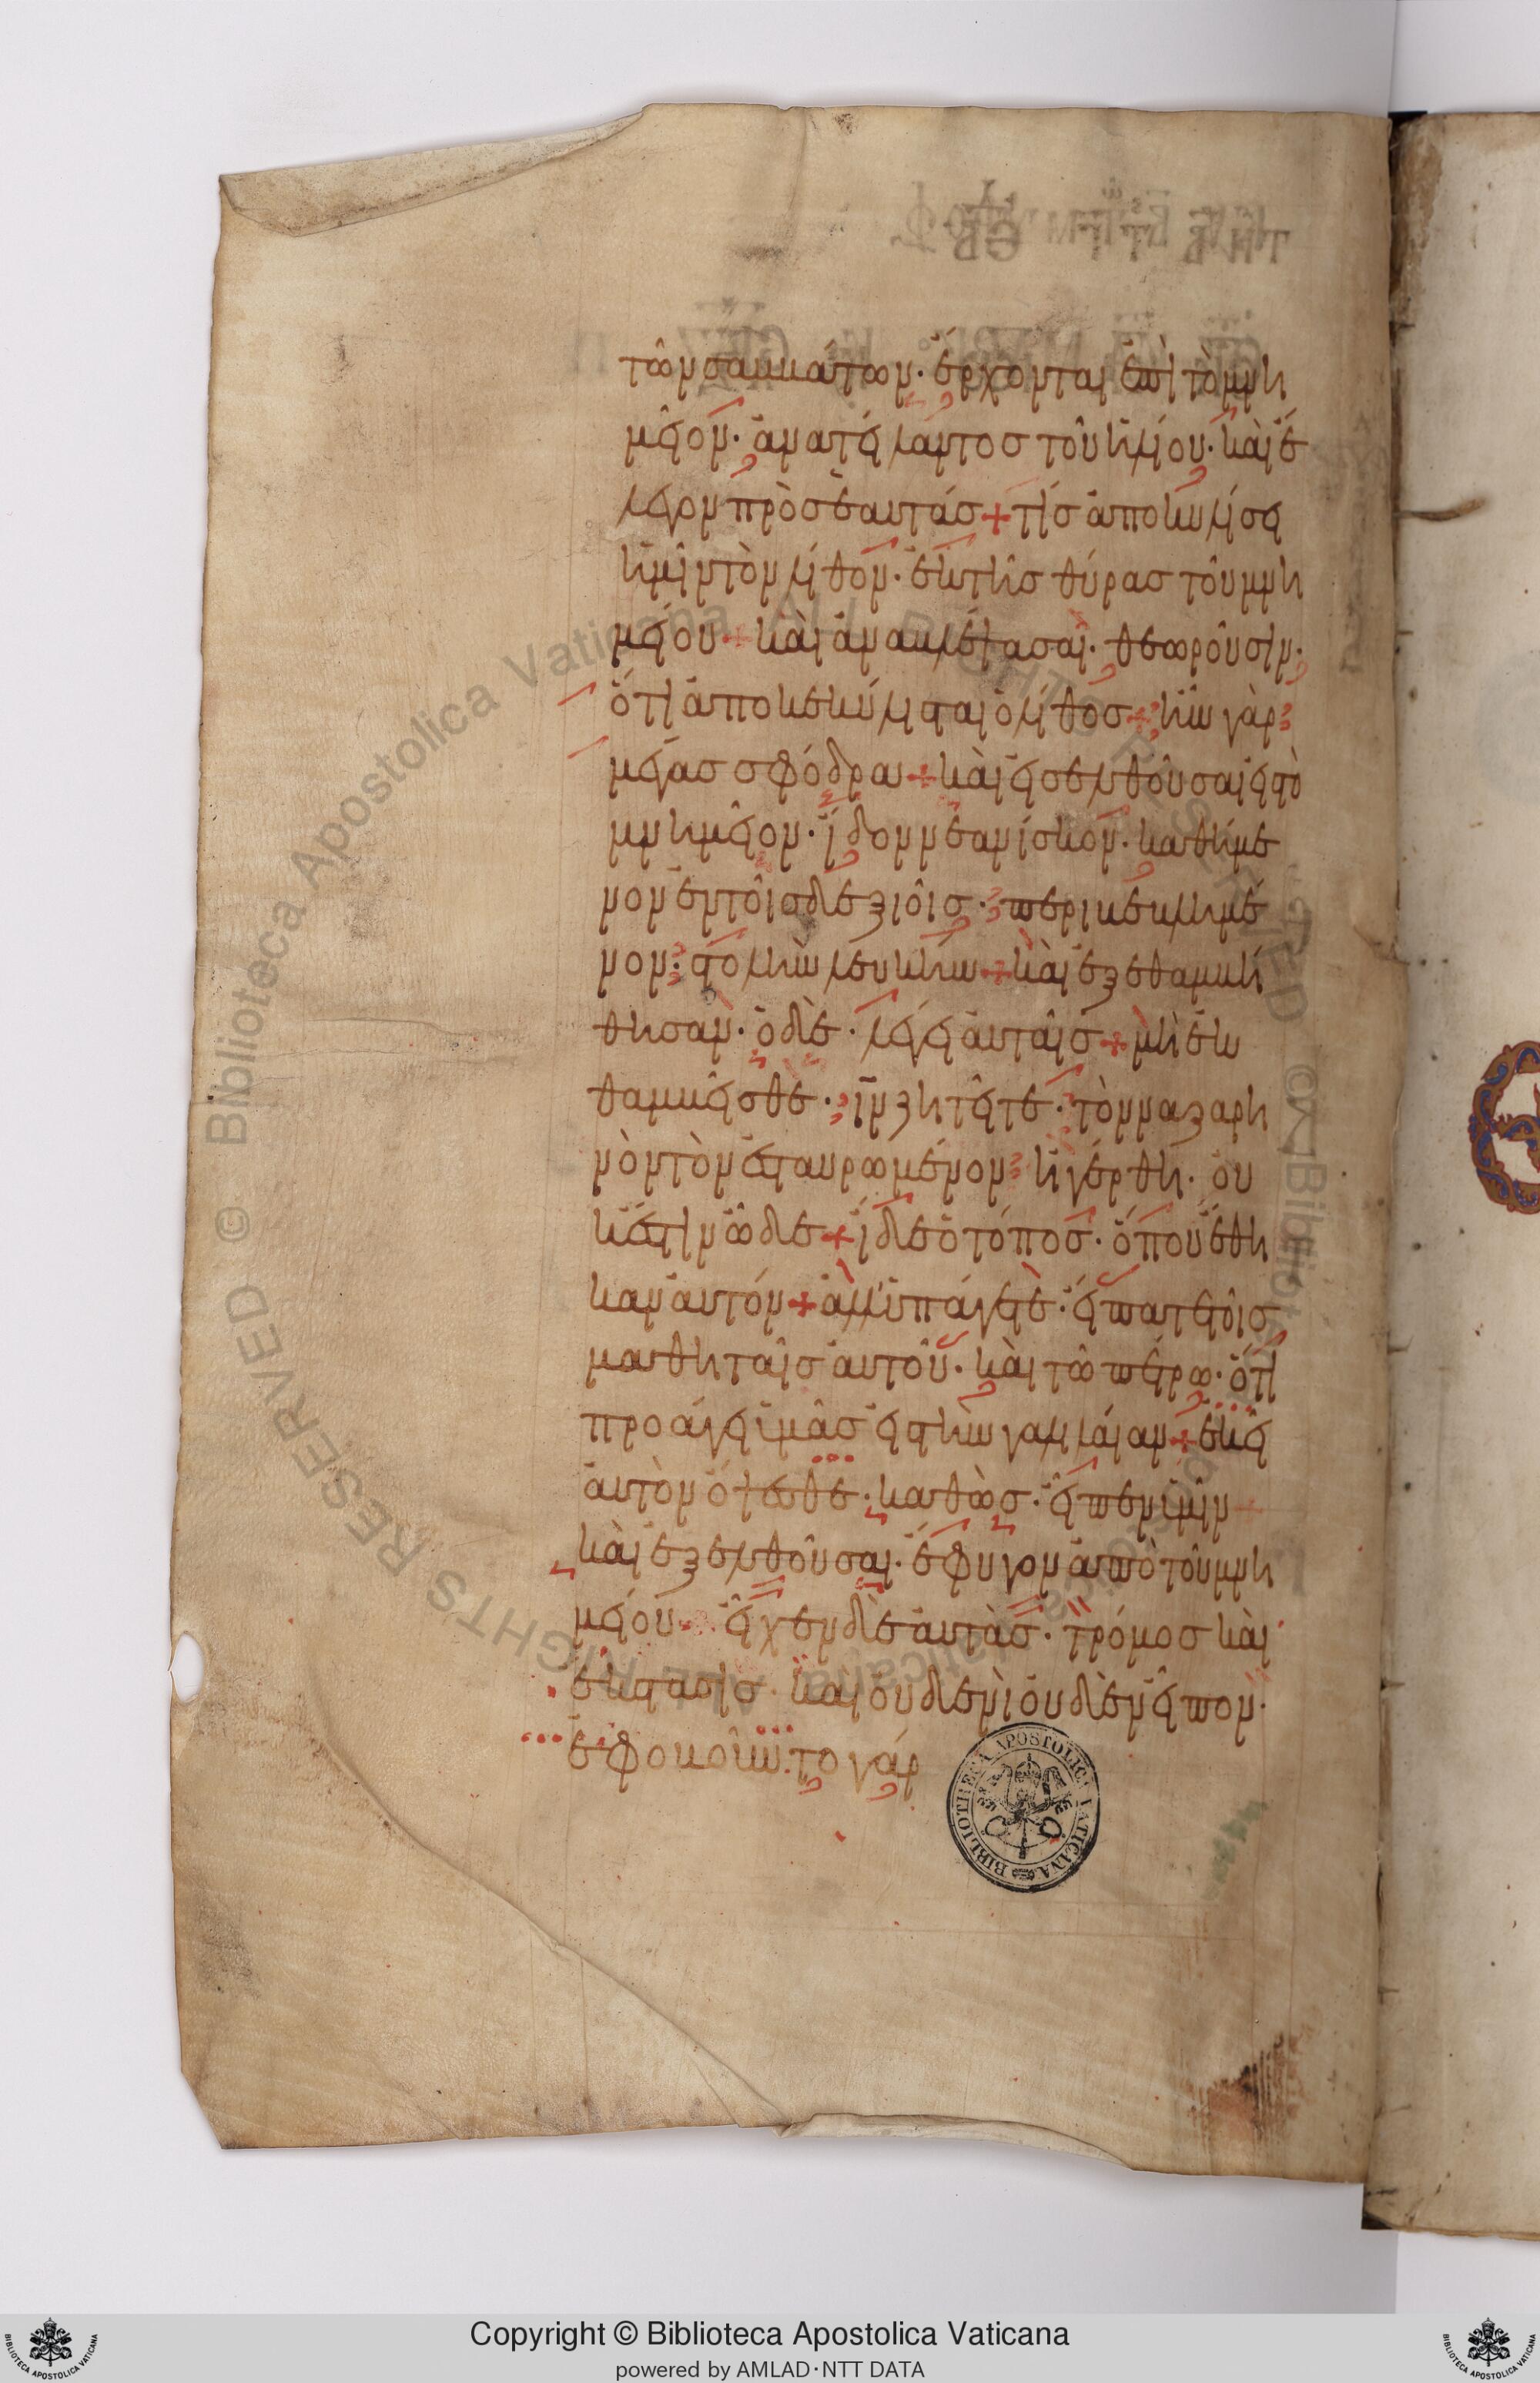 τῶν σαββάτων· ἔρχονται ἐπὶ τὸ μνη
μεῖον· ἀνατείλαντος τοῦ ἡλίου· καὶ ἔ
λεγον πρὸς ἑαυτάς + τίς ἀποκυλίσει
ἡμῖν τὸν λίθον· ἐκ τῆς θύρας τοῦ μνη
μείου + καὶ ἀναβλέψασαι· θεωροῦσιν·
ὅτι ἀποκεκύλισται ὁ λίθος + ἦν γὰρ
μέγας σφόδρα + καὶ εἰσελθοῦσαι εἰς τὸ
μνημεῖον· ἴδον νεανίσκον· καθήμε
νον ἐν τοῖς δεξιοῖς· περιβεβλημέ
νον· στολὴν λευκήν + καὶ ἐξεθαμβή
θησαν· ὁ δὲ· λέγει αὐταῖς + μὴ ἐκ
θαμβεῖσθε· ἰν ζητεῖτε· τὸν ναζαρη
νὸν τὸν ἐσταυρωμένον· ἠγέρθη· οὐ
κ ἔστιν ὧδε + ἴδε ὁ τόπος· ὅπου ἔθη
καν αὐτόν + ἀλλ' ὑπάγετε· εἴπατε τοῖς
μαθηταῖς αὐτοῦ· καὶ τῶ πέτρω· ὅτι
προάγει ὑμᾶς εἰς τὴν γαλιλαίαν + ἐκεῖ
αὐτὸν ὄψεσθε· καθὼς· εἶπεν ὑμῖν
καὶ ἐξελθοῦσαι· ἔφυγον ἀπὸ τοῦ μνη
μείου· εἶχεν δὲ αὐτὰς· τρόμος καὶ
ἔκστασις· καὶ οὐδενὶ οὐδὲν εἶπον·
ἐφοβοῦντο γάρ
BIBLIOTHECA APOSTOLICA VATICANA
© Biblioteca Apostolica Vaticana ALL RIGHTS RESERVED
Copyright © Biblioteca Apostolica Vaticana
powered by AMLAD·NTT DATA